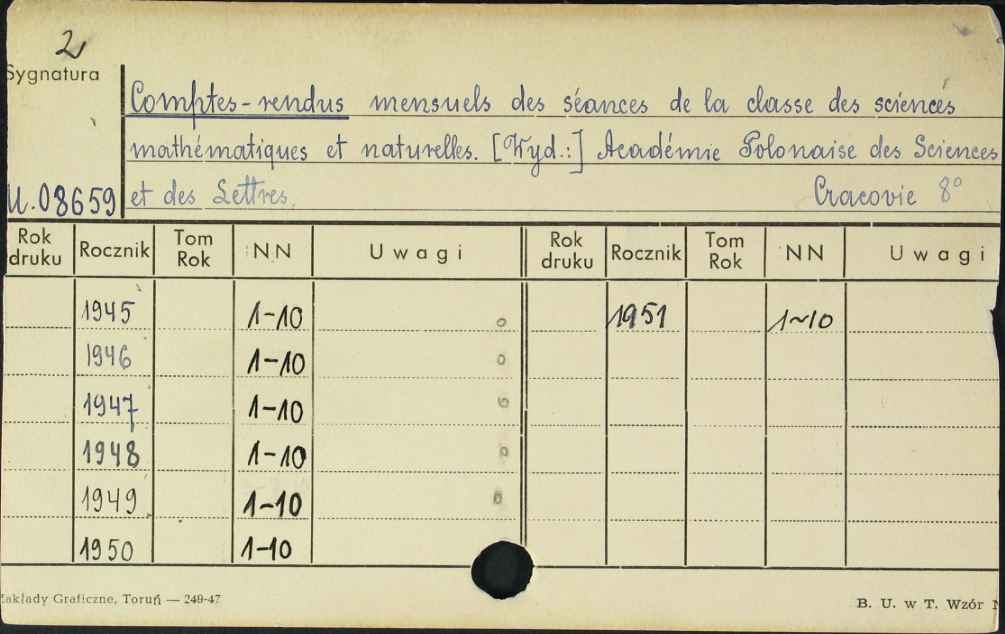 2
Sygnatura
Comptes-rendus mensuels des séances de la classe des sciences
mathématiques et naturelles. [Wyd.:] Académie Polonaise des Sciences
U.08659 et des Lettres. Cracovie 8°
Rok druku Rocznik Tom Rok NN Uwagi Rok druku Rocznik Tom Rok NN Uwagi
1945 1-10 0 1951 1-10
1946 1-10 0
1947 1-10
1948 1-10 0
1949 1-10 0
1950 1-10
Zakłady Graficzne, Toruń — 249-47 B. U. w T. Wzór